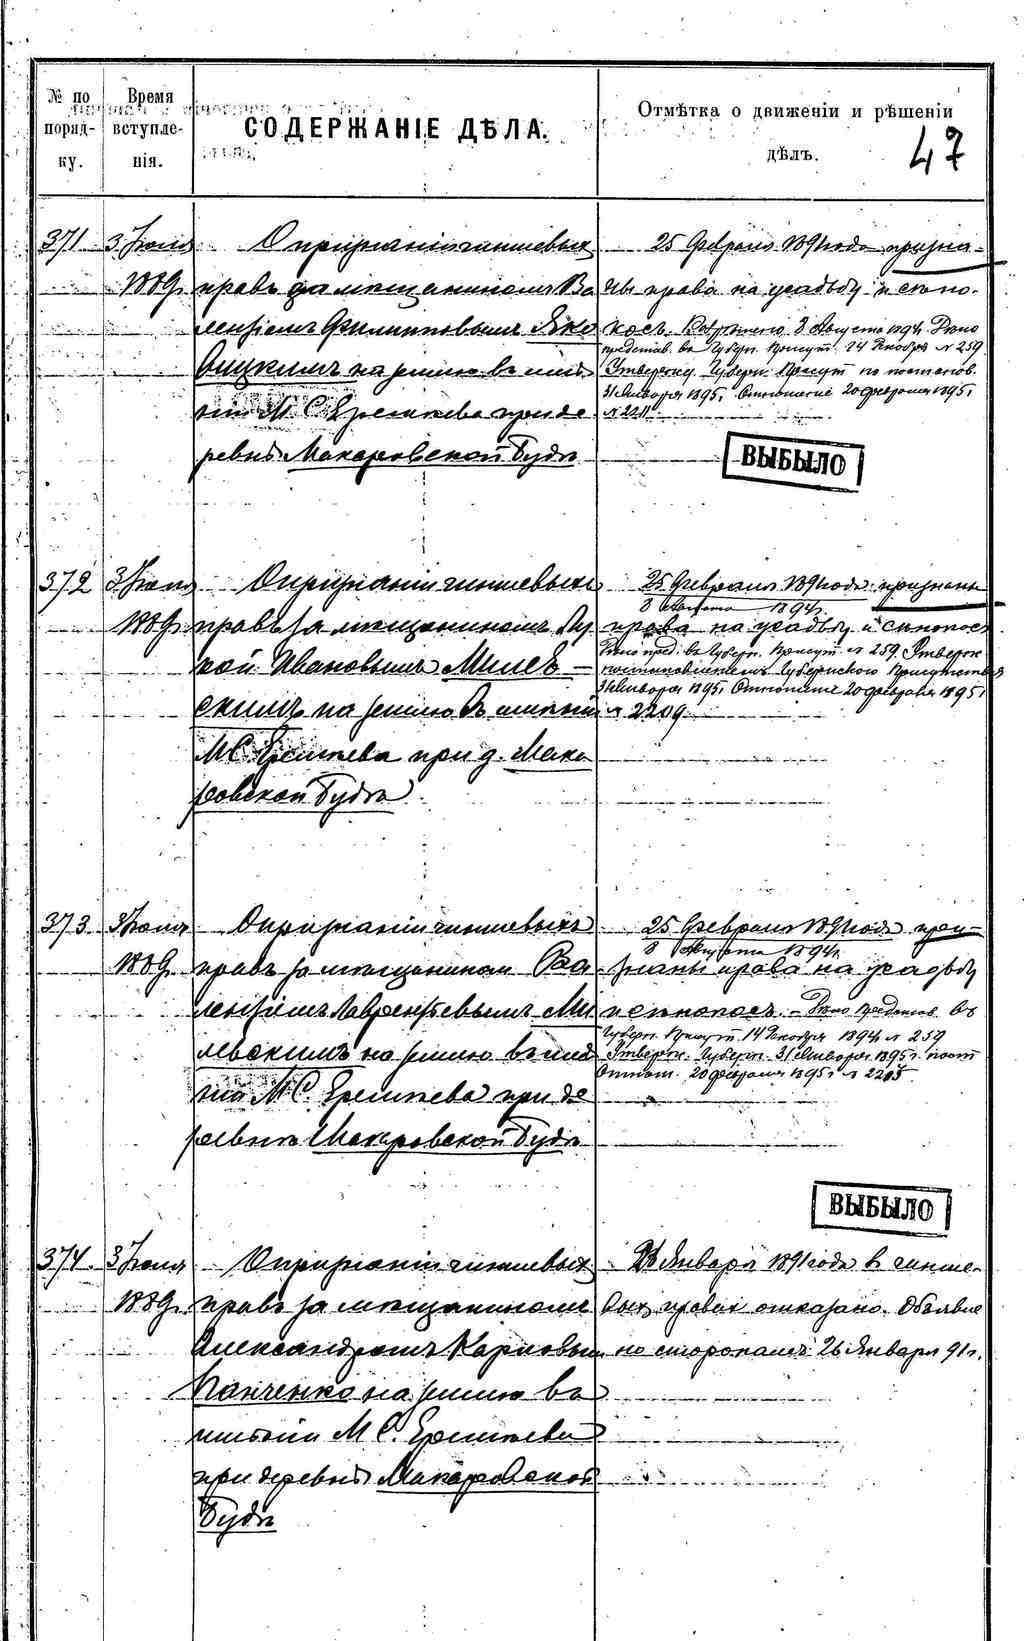 № по поряд-ку.
Время вступле-нія.
СОДЕРЖАНІЕ ДѢЛА.
Отмѣтка о движеніи и рѣшеніи дѣлъ.
47
371
3 Іюля
1889
О признаніи чиншевыхъ
правъ за мѣщаниномъ Ва
ленгіемъ Филипповымъ Яко
вицкимъ на землю въ имѣ
ніи М. С. Еремѣева при де
ревнѣ Макаровской Будѣ
25 Февраля 1891 года призна-
ны права на усадьбу и сѣно-
косъ. 8 Августа 1894 Дѣло
представ. въ Губерн. Присут. 14 Декабря № 259
Утвержд. Губерн. Присут по постанов.
31 Января 1895 г. Отношеніе 20 февраля 1895 г.
ВЫБЫЛО
372
3 Іюля
1889
О признаніи чиншевыхъ
правъ за мѣщаниномъ Лу
кой Ивановымъ Милев-
скимъ на землю въ имѣніи
М. С. Еремѣева при д. Мака
ровской Будѣ
25 Февраля 1891 года признаны
8 Августа 1894 г.
права на усадьбу и сѣнокос
Дѣло пред. въ Губерн. Присут № 259. Утвержд
постановленіемъ Губернского Присутствія
31 Января 1895 г. Отношеніе 20 февраля 1895 г
№ 2209
373
3 Іюля
1889
О признаніи чиншевыхъ
правъ за мѣщанином Ва
ленгіемъ Лаврентьевымъ Ми
левскимъ на землю въ имѣ
ніи М. С. Еремѣева при де
ревнѣ Макаровской Будѣ
25 Февраля 1891 года приз-
8 Августа 1894 г.
знаны права на усадьбу
и сѣнокосъ. - Дѣло представ въ
Губерн. Присут. 14 Декабря 1894 г № 259
Утвержд. Губерн. 31 Января 1895 г. пост
Отнош. 20 февраля 1895 г №
ВЫБЫЛО
374.
3 Іюля
1889
О признаніи чиншевыхъ
правъ за мѣщаниномъ
Александромъ Карповым
Панченко на землю въ
имѣніи М. С. Еремѣева
при деревнѣ Макаровской
Будѣ
Января 1891 года в чинше-
вых правах отказано. Объявле
но сторонамъ 26 Января 91 г.